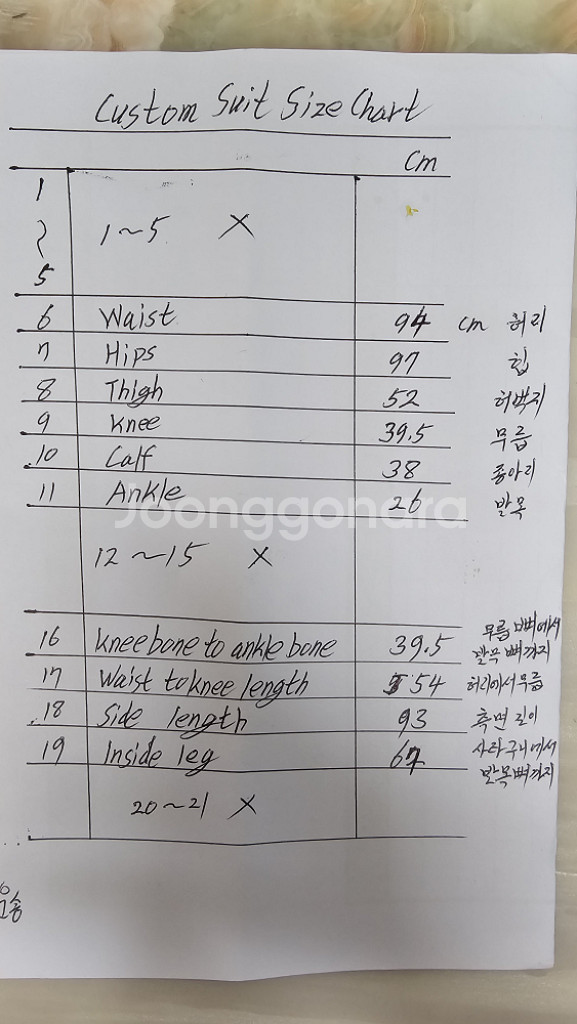 Custom Suit Size Chart
Cm
1
1~5 X
5
6 Waist 94 cm 허리
7 Hips 97 힙
8 Thigh 52 허벅지
9 Knee 39.5 무릎
10 Calf 38 종아리
11 Ankle 26 발목
Joonggonara
12~15 X
16 Kneebone to ankle bone 39.5 무릎뼈에서
발목뼈까지
17 Waist to knee length 54 허리에서무릎
18 Side length 93 측면길이
19 Inside leg 67 사타구니에서
발목뼈까지
20~21 X